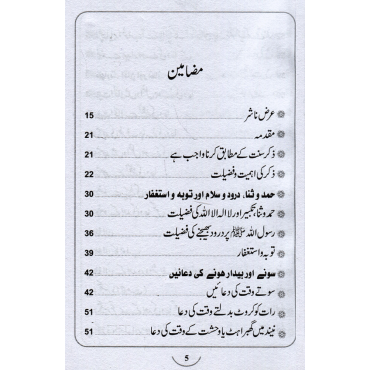 مضامین
عرض ناشر 15
مقدمہ 21
ذکر سنت کے مطابق کرنا واجب ہے 21
ذکر کی اہمیت و فضیلت 22
حمد و ثنا، درود و سلام اور توبہ و استغفار 30
حمد و ثنا، تکبیر اور لا الہ الا اللہ کی فضیلت 30
رسول اللہ ﷺ پر درود بھیجنے کی فضیلت 36
توبہ و استغفار 39
سونے اور بیدار ہونے کی دعائیں 42
سوتے وقت کی دعائیں 42
رات کو کروٹ بدلتے وقت کی دعا 51
نیند میں گھبراہٹ یا وحشت کے وقت کی دعا 51
5